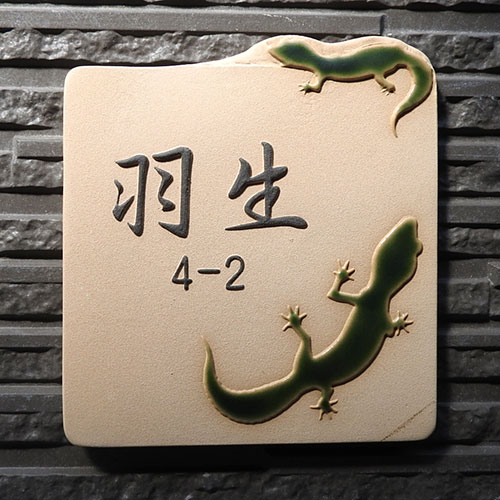 羽生
4-2